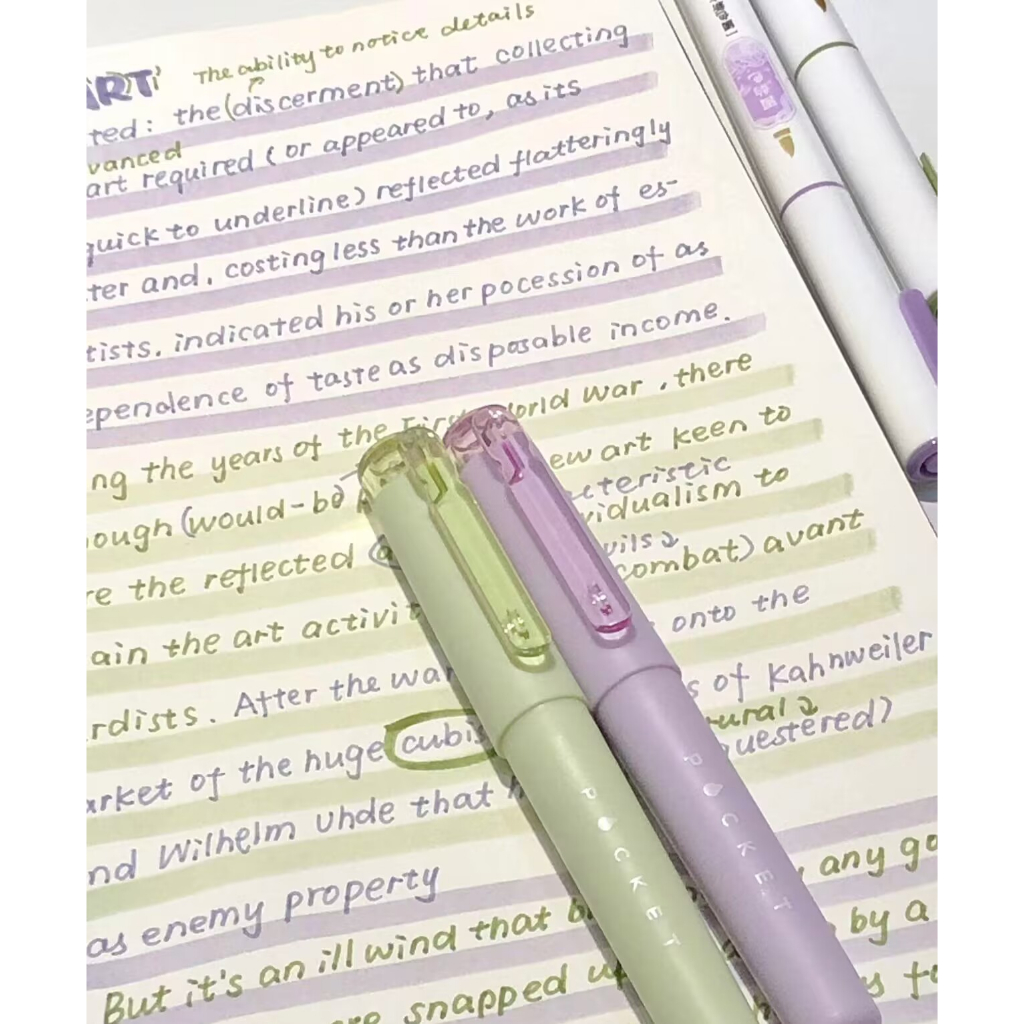 ART
The ability to notice details
ted: the (discerment) that collecting
vanced
art required (or appeared to, as its
quick to underline) reflected flatteringly
ter and, costing less than the work of es-
tists. indicated his or her pocession of as
ependence of taste as disposable income.
ng the years of the First World War, there
ough (would-be ew art keen to
cteristic
re the reflected vidualism to
vils 2
ain the art activit combat) avant
onto the
rdists. After the war s of Kahnweiler
arket of the huge cubis ural 2
uestered)
nd Wilhelm Uhde that
as enemy property
But it's an ill wind that any go
re snapped u by a
POCKET
POCKET